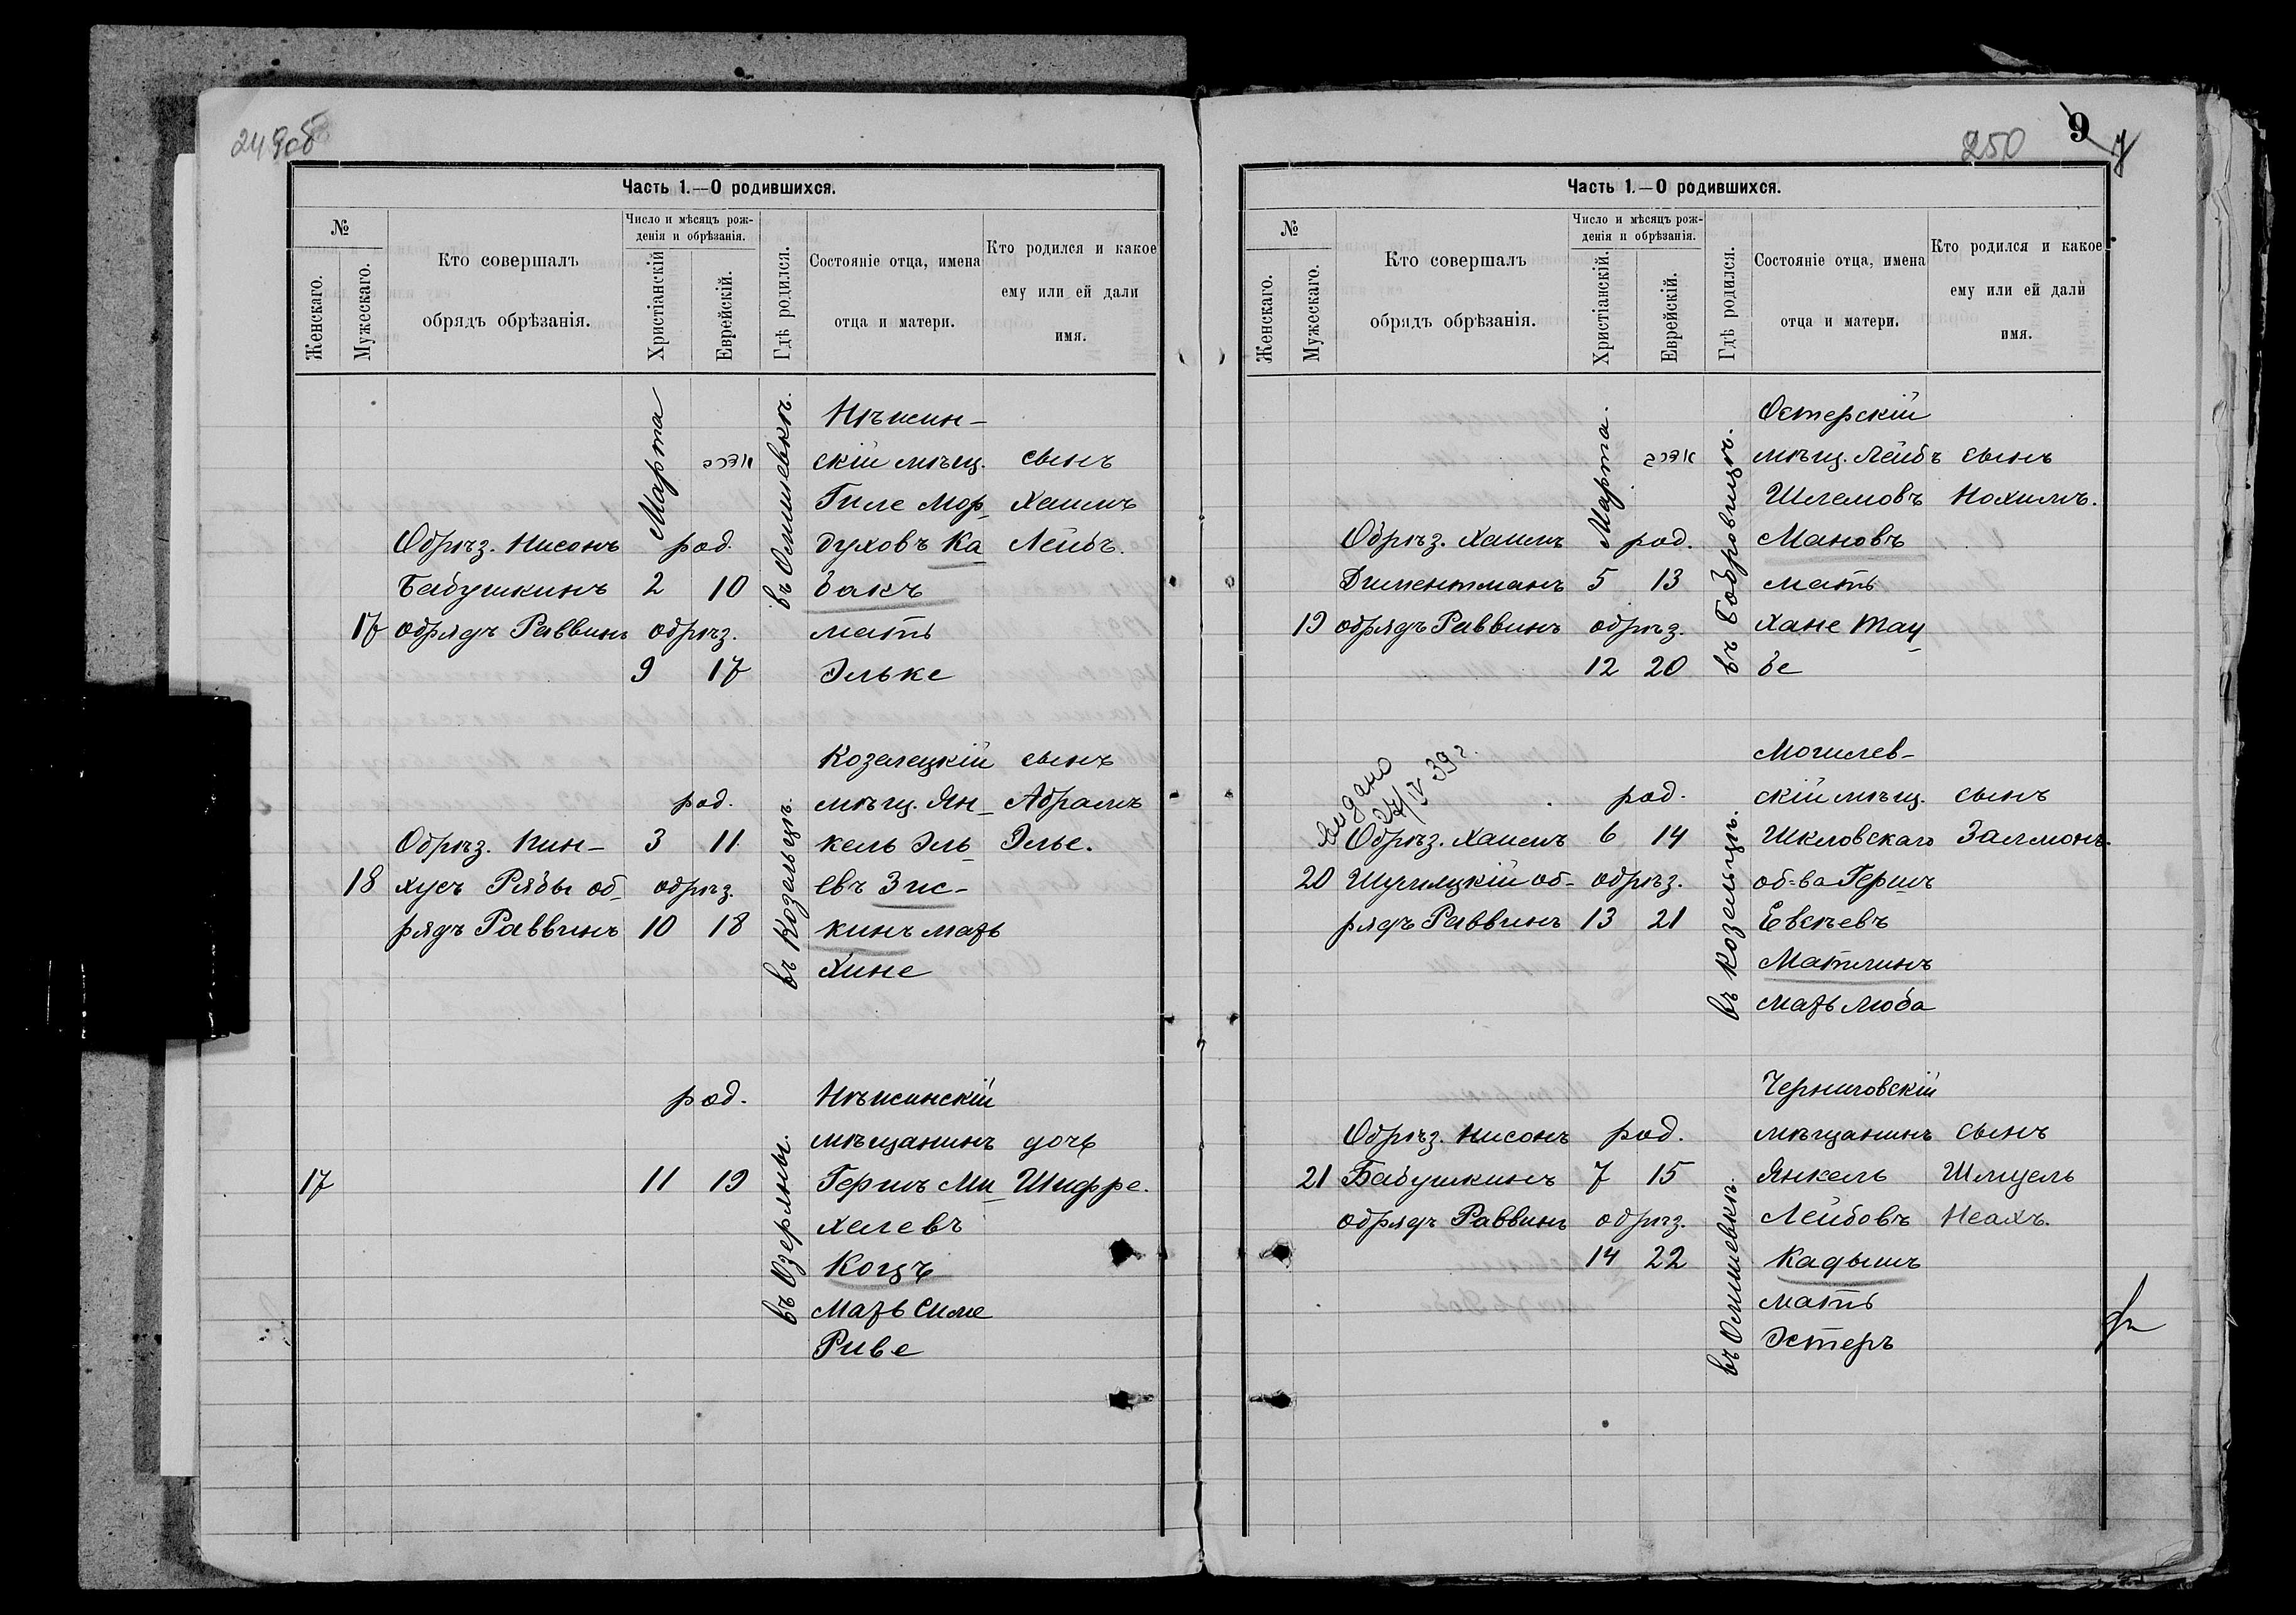 249об
Часть 1.—О родившихся.
№
Женскаго.
Мужескаго.
Кто совершалъ
обрядъ обрѣзанія.
Число и мѣсяцъ рож-
денія и обрѣзанія.
Христіанскій
Еврейскій.
Гдѣ родился.
Состояніе отца, имена
отца и матери.
Кто родился и какое
ему или ей дали
имя.
17
Обрѣз. Нисонъ
Бабушкинъ
обрядъ Раввинъ
Марта
род.
2 10
обрѣз.
9 17
въ Олишевкѣ.
Нѣжин-
скій мѣщ.
Гиле Мор-
духовъ Ка-
бакъ
мать
Эльке
сынъ
Хаимъ
Лейбъ.
18
Обрѣз. Пин-
хусъ Рябы об-
рядъ Раввинъ
род.
3 11
обрѣз.
10 18
въ Козельцѣ.
Козелецкій
мѣщ. Ян-
кель Эль-
евъ Зис-
кинъ мать
Хине
сынъ
Абрамъ
Элье.
17
род.
11 19
въ Озеряны.
Нѣжинскій
мѣщанинъ
Гершъ Ми-
хелевъ
Коцъ
мать Симе
Риве
дочь
Шифре.
250
9
Часть 1.—О родившихся.
№
Женскаго.
Мужескаго.
Кто совершалъ
обрядъ обрѣзанія.
Число и мѣсяцъ рож-
денія и обрѣзанія.
Христіанскій.
Еврейскій.
Гдѣ родился.
Состояніе отца, имена
отца и матери.
Кто родился и какое
ему или ей дали
имя.
19
Обрѣз. Хаимъ
Диментманъ
обрядъ Раввинъ
Марта.
род.
5 13
обрѣз.
12 20
въ Бобровицѣ.
Остерскій
мѣщ. Лейбъ
Шлемовъ
Мановъ
мать
Хане Тау-
бе
сынъ
Нохимъ.
Видано
27/IV 39 г.
20
Обрѣз. Хаимъ
об-
рядъ Раввинъ
род.
6 14
обрѣз.
13 21
въ Козельцѣ.
Могилев-
скій мѣщ.
Шкловскаго
об-ва Гершъ
Евсѣевъ
Матлинъ
мать Люба
сынъ
Залмонъ.
21
Обрѣз. Нисонъ
Бабушкинъ
обрядъ Раввинъ
род.
7 15
обрѣз.
14 22
въ Олишевкѣ.
Черниговскій
мѣщанинъ
Янкель
Лейбовъ
Кадышъ
мать
Эстеръ
сынъ
Шмуель
Неахъ.